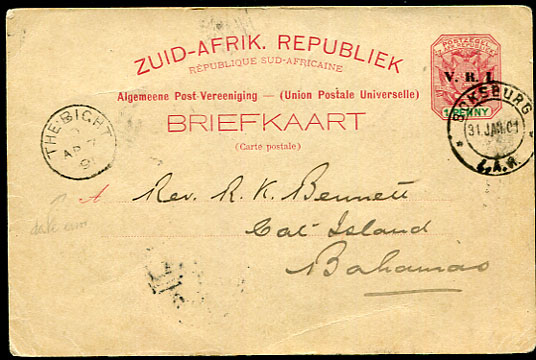 ZUID-AFRIK. REPUBLIEK
RÉPUBLIQUE SUD-AFRICAINE
Algemeene Post-Vereeniging — (Union Postale Universelle)
BRIEFKAART
(Carte postale)
POSTZEGEL
V. R. I.
1 PENNY
BOKSBURG
31 JAN. 01
Z.A.R.
THE BIGHT
AP 7
A Rev. R. K. Bennett
Cat Island
Bahamas